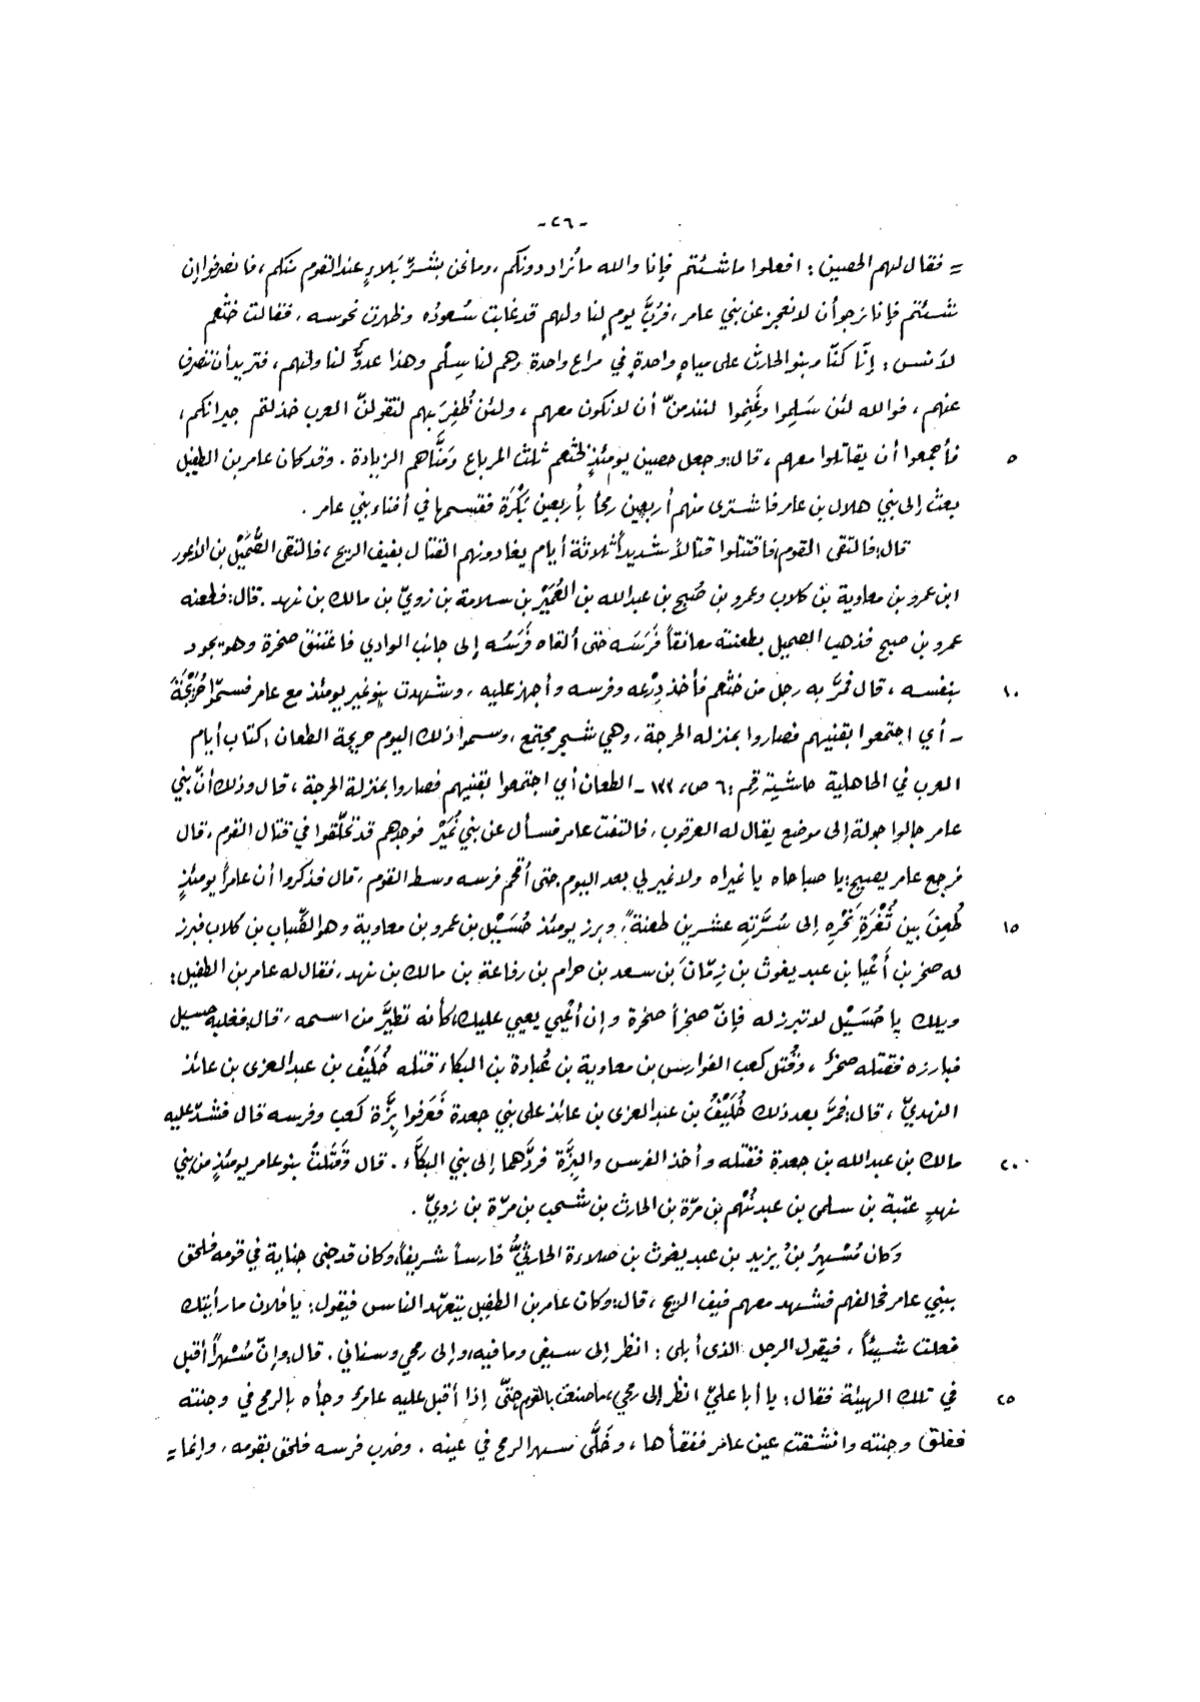 -٢٦-
= فقال لهم الحصين : افعلوا ما شئتم فإنا والله ما نُراد دونكم ، وما نحن بشرِّ بَلاءٍ عند القوم منكم ، فانصرفوا إن
شئتم فإنا نرجو أن لا نعجز عن بني عامر ، فرُبَّ يومٍ لنا ولهم قد غابت سُعودُه وظهرت نحوسه ، فقالت خثعم
لأنس : إنّا كنّا وبنو الحارث على مياهٍ واحدةٍ في مراعٍ واحدة وهم لنا سِلْم وهذا عدوٌّ لنا ولهم ، فتريد أن ننصرف
عنهم ، فوالله لئن سَلِموا وغَنِموا لنندمنّ أن لا نكون معهم ، ولئن ظُفِرَ بهم لتقولنّ العرب خذلتم جيرانكم ،
٥ فأجمعوا أن يقاتلوا معهم ، قال: وجعل حصين يومئذٍ لخثعم ثلث المرباع ومَنَّاهم الزيادة . وقد كان عامر بن الطفيل
بعث إلى بني هلال بن عامر فاشترى منهم أربعين رمحاً بأربعين بَكْرَة فقسمها في أفناء بني عامر .
قال: فالتقى القوم فاقتتلوا قتالاً شديداً ثلاثة أيام يغادونهم القتال بفيف الريح ، فالتقى الصُّمَيْل بن الأعور
ابن عمرو بن معاوية بن كلاب وعمرو بن صُبيح بن عبدالله بن العُمَيْر بن سلامة بن زويّ بن مالك بن نهد . قال: فطعنه
عمرو بن صبيح فذهب الصميل بطعنته معانقاً فَرَسَه حتى ألقاه فَرَسُه إلى جانب الوادي فاعتنق صخرة وهو يجود
١٠ بنفسه ، قال فمرَّ به رجل من خثعم فأخذ دِرْعه وفرسه وأجهز عليه ، وشهدت بنو نمير يومئذ مع عامر فسمّوا حُرَيْجَةَ
- أي اجتمعوا بقنيهم فصاروا بمنزلة الحرجة ، وهي شجر مجتمع ، وسموا ذلك اليوم حريجة الطعان ، كتاب أيام
العرب في الجاهلية حاشية رقم : ٦ ص، ١٣٣ - الطعان أي اجتمعوا بقنيهم فصاروا بمنزلة الحرجة ، قال وذلك أنّ بني
عامر جالوا جولة إلى موضع يقال له العرقوب ، فالتفت عامر فسأل عن بني نُمَيْر فوجدهم قد تخلّفوا في قتال القوم ، قال
فرجع عامر يصيح: يا صباحاه يا نميراه ولا نمير لي بعد اليوم حتى أقحم فرسه وسط القوم ، قال فذكروا أن عامراً يومئذٍ
١٥ طُعِنَ بين ثُغْرَةِ نَحْرِهِ إلى سُرَّتِهِ عشرين طعنةً ، وبرز يومئذ حُسَيْل بن عمرو بن معاوية وهو الضِّباب بن كلاب فبرز
له صخر بن أَعْيا بن عبد يغوث بن زِمّانَ بن سعد بن حرام بن رفاعة بن مالك بن نهد ، فقال له عامر بن الطفيل :
ويلك يا حُسَيْل لا تبرز له فإنّ صخراً صخرة وإن أَعْيى يعيي عليك، كأنه تطيَّر من اسمه ، قال: فغلبه حسيل
فبارزه فقتله صخرٌ ، وقُتِل كعب الفوارس بن معاوية بن عُبادة بن البكاء قتله خُلَيْفُ بن عبد العزى بن عائذ
النهديّ ، قال: فمرَّ بعد ذلك خُلَيْفُ بن عبد العزى بن عائذ على بني جعدة فَعَرفوا بِزَّة كعب وفرسه قال فشدّ عليه
٢٠ مالك بن عبد الله بن جعدة فقتله وأخذ الفرس والبِزَّة فردَّهما إلى بني البكَّاء . قال وقَتَلتْ بنو عامر يومئذٍ من بني
نهدٍ عتبة بن سلمى بن عبد نُهْم بن مرّة بن الحارث بن شجب بن مرّة بن زويّ .
وكان مُسْهِرُ بنُ يزيد بن عبد يغوث بن صلاءة الحارثيُّ فارساً شريفاً، وكان قد جنى جناية في قومه فلحق
ببني عامر فحالفهم فشهد معهم فيف الريح ، قال: وكان عامر بن الطفيل يتعهّد الناس فيقول : يا فلان ما رأيتك
فعلت شيئاً ، فيقول الرجل الذي أبلى : انظر إلى سيفي وما فيه، وإلى رمحي وسناني . قال وإنّ مُسْهراً أقبل
٢٥ في تلك الهيئة فقال : يا أبا عليّ انظر إلى رمحي، ما صنعت بالقوم حتّى إذا أقبل عليه عامرٌ وجأه بالرمح في وجنته
ففلق وجنته وانشقت عين عامر ففقأها ، وخَلَّى مسهر الرمح في عينه . وضرب فرسه فلحق بقومه ، وإنما =